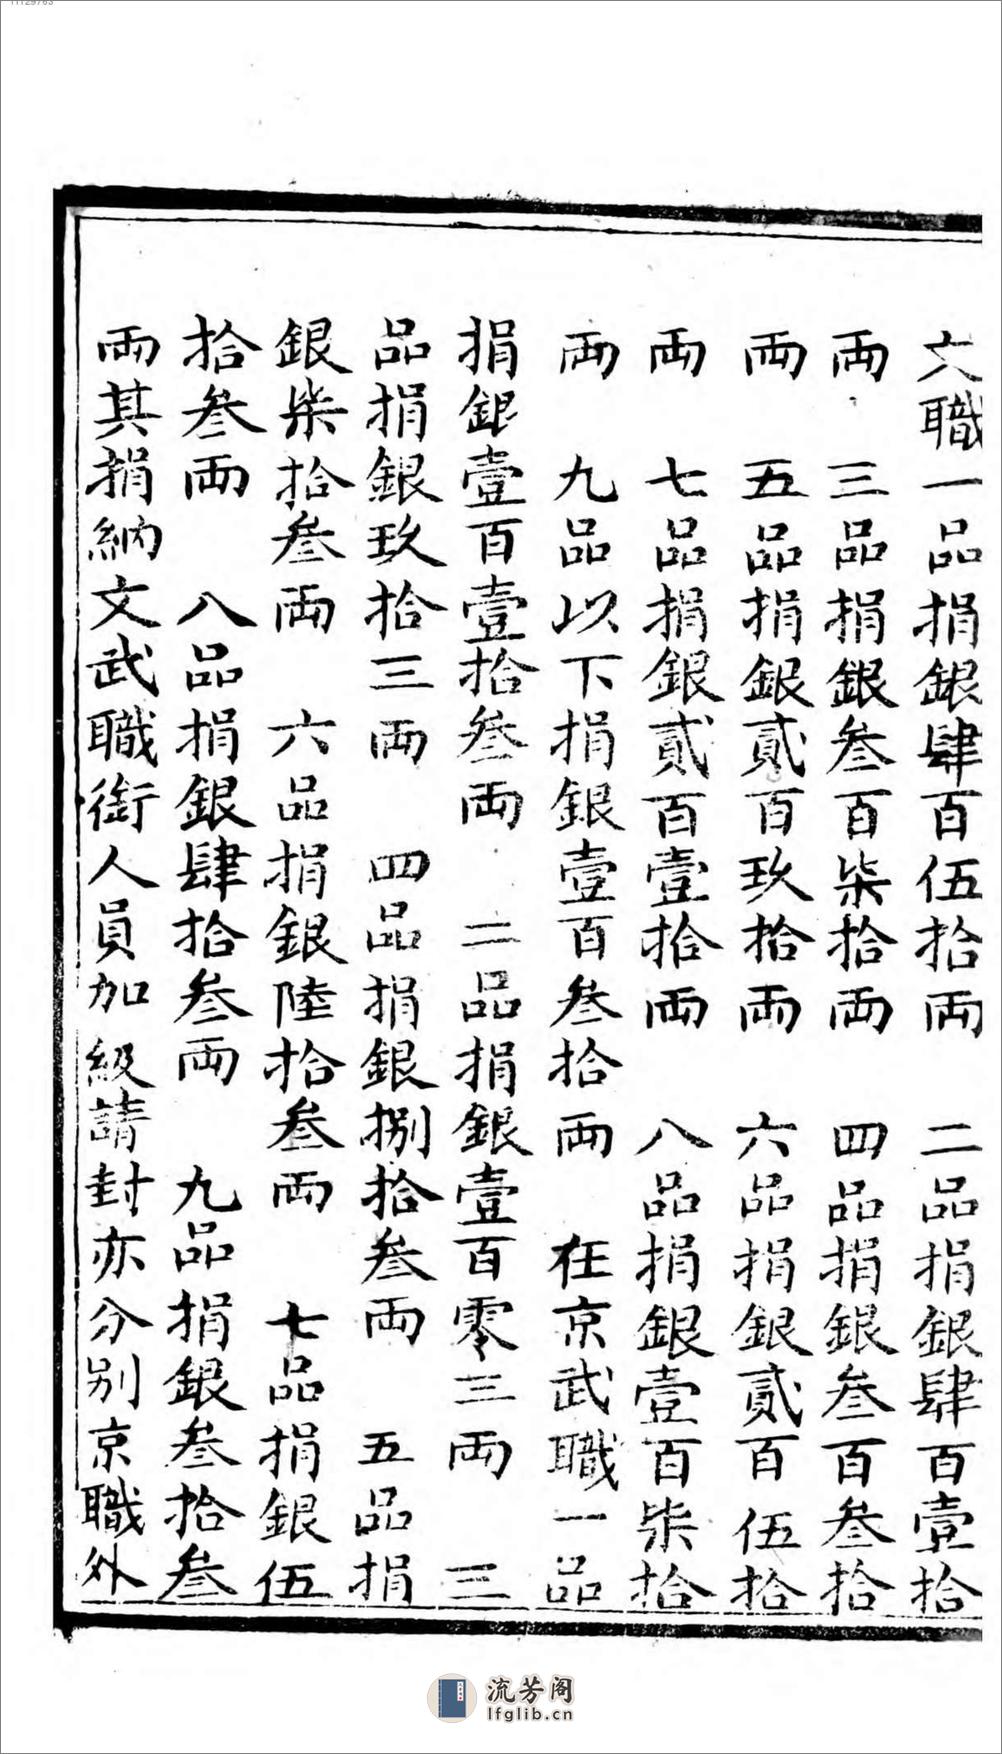 11129763
職一品捐銀肆百伍拾両　二品捐銀肆百壹拾
両　三品捐銀叁百柒拾両　四品捐銀叁百叁拾
両　五品捐銀貳百玖拾両　六品捐銀貳百伍拾
両　七品捐銀貳百壹拾両　八品捐銀壹百柒拾
両　九品以下捐銀壹百叁拾両　在京武職一品
捐銀壹百壹拾叁両　二品捐銀壹百零三両　三
品捐銀玖拾三両　四品捐銀捌拾叁両　五品捐
銀柒拾叁両　六品捐銀陸拾叁両　七品捐銀伍
拾叁両　八品捐銀肆拾叁両　九品捐銀叁拾叁
両其捐納文武職銜人員加級請封亦分別京職外
流芳阁
lfglib.cn